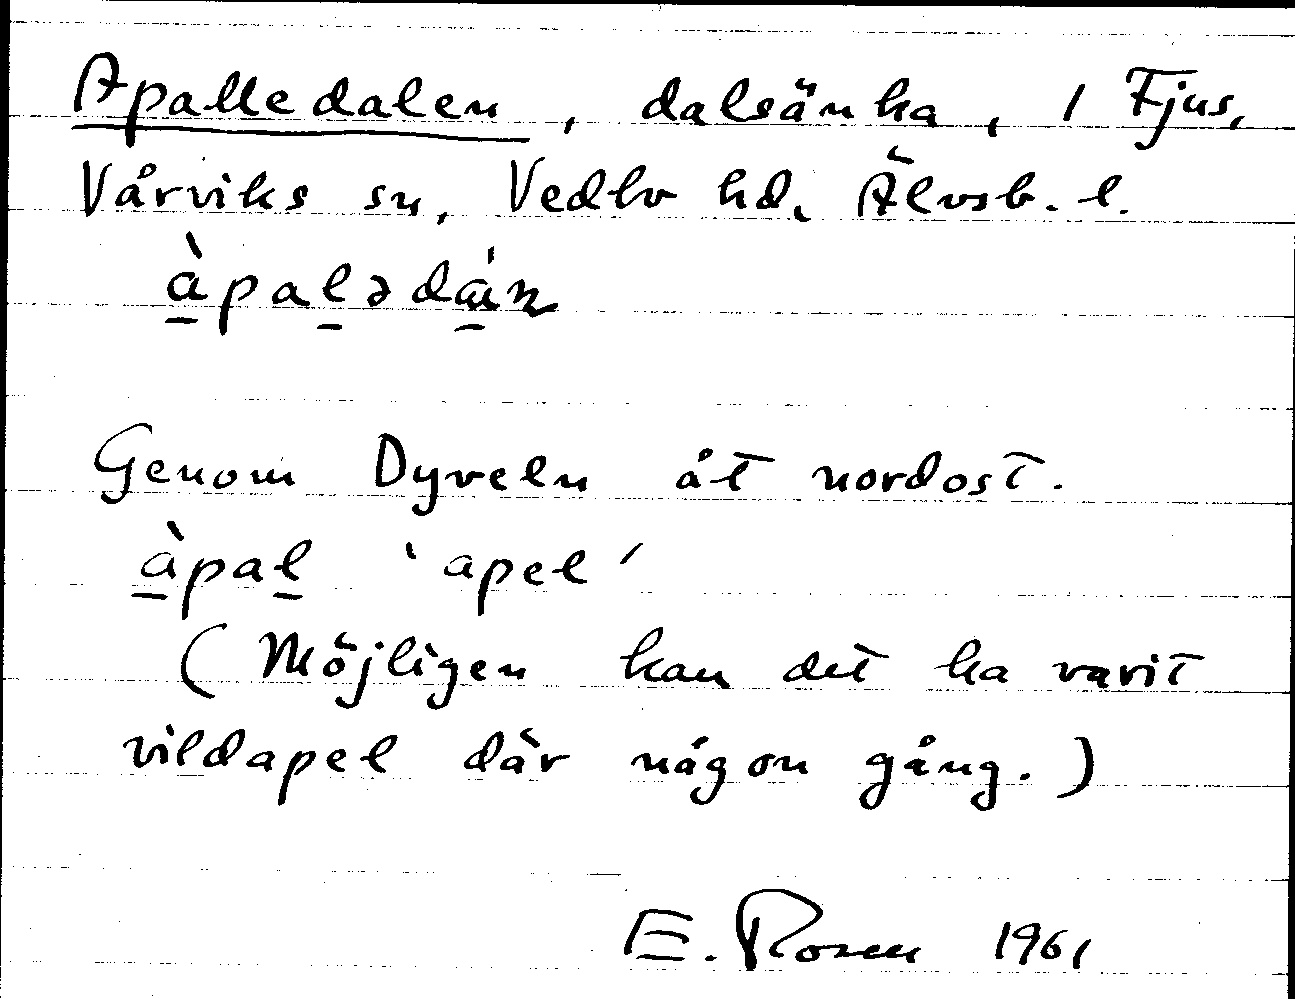 Apalledalen, dalsänka, 1 Fjus,
Vårviks sn, Vedbo hd, Älvsb. l.
àpalədán
Genom Dyveln åt nordost.
àpal 'apel'
(Möjligen kan det ha varit
vildapel där någon gång.)
E. Rosen 1961